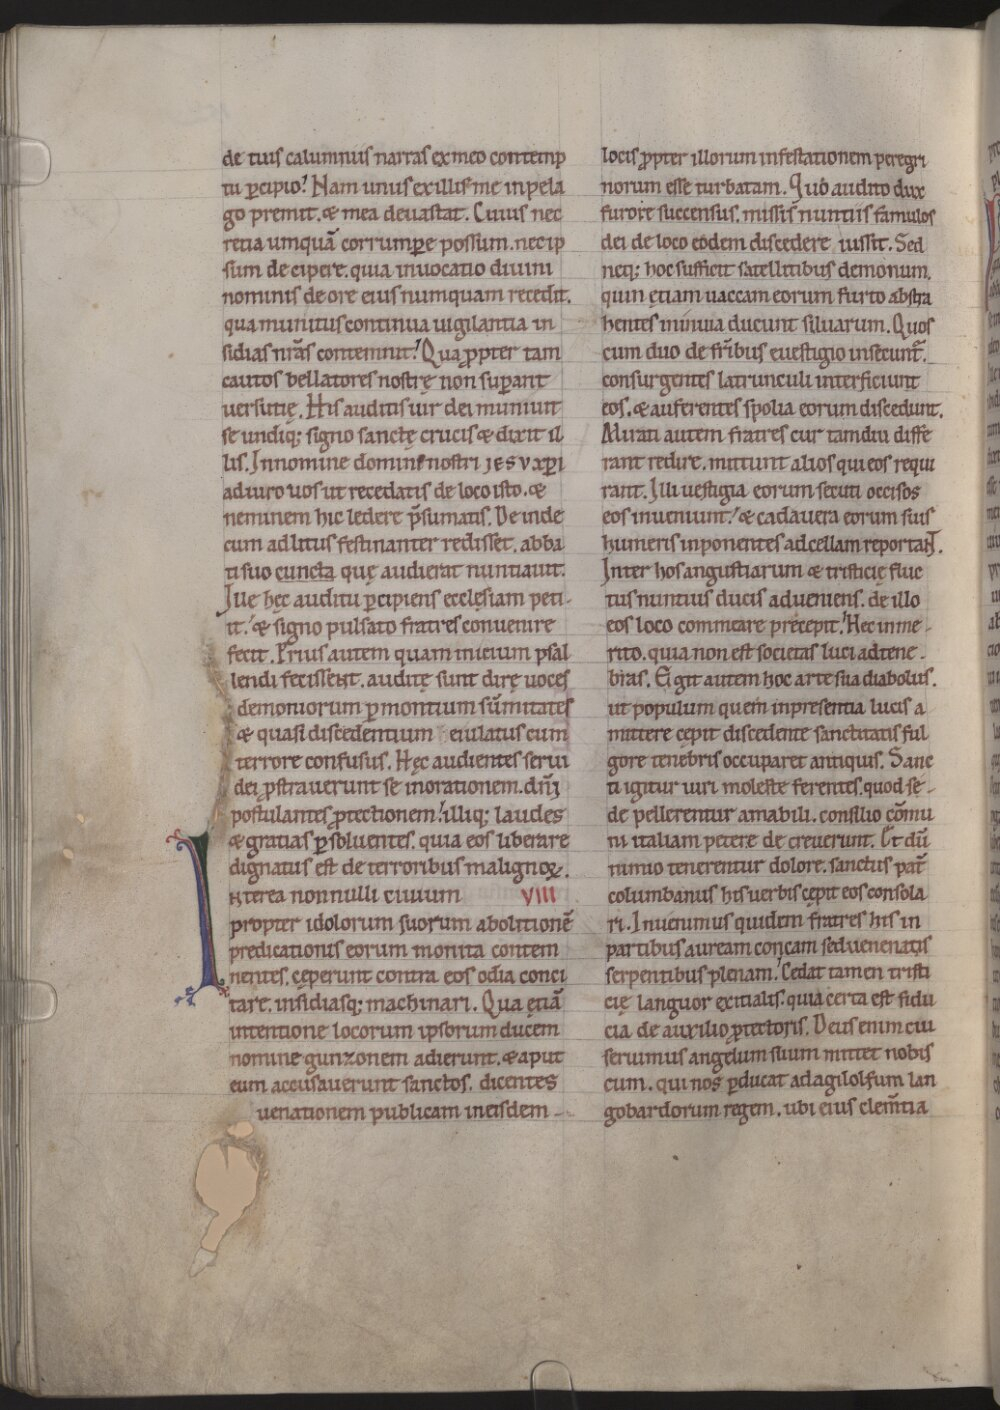 de tuis calumniis narras ex meo contemp
tu p̱cipio? Nam unus ex illis me in pela
go premit. & mea deuastat. Cuius nec
retia umquā corrump̱e possum. nec ip
sum decipere. quia inuocatio diuini
nominis de ore eius numquam recedit.
qua munitus continua uigilantia in
sidias nr̄as contemnit? Qua ꝓpter tam
cautos bellatores nostrę non sup̱ant
uersutię. His auditis uir dei muniuit
se undiq; signo sanctę crucis & dixit il
lis. In nomine domini nostri IESV xp̄i
adiuro uos ut recedatis de loco isto. &
neminem hic ledere p̄sumatis. Deinde
cum ad litus festinanter redisset. abba
ti suo cuncta quę audierat nuntiauit.
Ille hęc auditu p̱cipiens ecclęsiam peti-
it. & signo pulsato fratres conuenire
fecit. Prius autem quam inicium psal
lendi fecissent. auditę sunt dirę uoces
demoniorum p̱ montium sūmitates
& quasi discedentium eiulatus cum
terrore confusus. Hęc audientes serui
dei ꝓstrauerunt se in orationem. dn̄i
postulantes ꝓtectionem? illiq; laudes
& gratias p̱soluentes. quia eos liberare
dignatus est de terroribus malignoꝝ.
Interea nonnulli ciuium VIII
propter idolorum suorum abolitionē
predicationis eorum monita contem
nentes. cęperunt contra eos odia conci
tare. insidiasq; machinari. Qua etiā
intentione locorum ipsorum ducem
nomine gunzonem adierunt. & aput
eum accusauerunt sanctos. dicentes
uenationem publicam in eisdem
locis ꝓpter illorum infestationem peregri
norum esse turbatam. Quo audito dux
furore succensus. missis nuntiis famulos
dei de loco eodem discedere iussit. Sed
neq; hoc sufficit satellitibus demonum.
quin etiam uaccam eorum furto abstra
hentes in inuia ducunt siluarum. Quos
cum duo de fr̄ibus e uestigio insecunt̄.
consurgentes latrunculi interficiunt
eos. & auferentes spolia eorum discedunt.
Mirati autem fratres cur tamdiu diffe
rant redire. mittunt alios qui eos requi
rant. Illi uestigia eorum secuti occisos
eos inueniunt. & cadauera eorum suis
humeris inponentes ad cellam reportant.
Inter hos angustiarum & tristicię fluc
tus nuntius ducis adueniens. de illo
eos loco commeare precepit? Hec inme-
rito. quia non est societas luci ad tene-
bras. Egit autem hoc arte sua diabolus.
ut populum quem in presentia lucis a
mittere cępit discedente sanctitatis ful
gore tenebris occuparet antiquis. Sanc
ti igitur uiri moleste ferentes. quod se-
de pellerentur amabili. consilio cōmu
ni italiam petere decreuerunt. Et dū
nimio tenerentur dolore. sanctus pat̄
columbanus his uerbis cępit eos consola
ri. Inuenimus quidem fratres his in
partibus auream concam sed uenenatis
serpentibus plenam. Cedat tamen tristi
cię languor ęcitialis. quia certa est fidu
cia de auxilio ꝓtectoris. Deus enim cui
seruimus angelum suum mittet nobis
cum. qui nos p̱ducat ad agilolfum lan
gobardorum regem. ubi eius clem̄tia